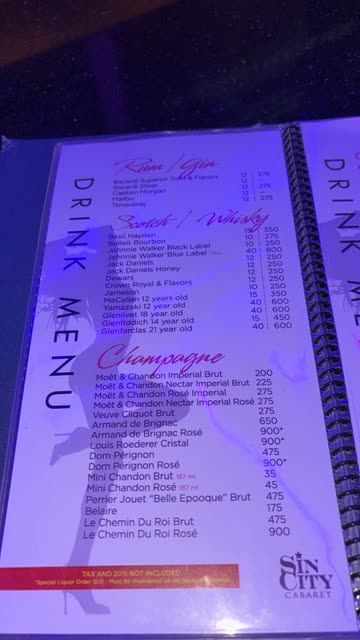 DRINK MENU
Rum / Gin
Bacardi Superior Gold & Flavors 12 | 275
Bacardi Silver 12 --
Captain Morgan 12 | 275
Malibu 12 --
Tanqueray 12 | 275
Scotch / Whisky
Basil Hayden 15 | 350
Bulleit Bourbon 10 | 275
Johnnie Walker Black Label 12 | 250
Johnnie Walker Blue Label 40 | 800
Jack Daniels 12 | 250
Jack Daniels Honey 12 | 250
Dewars 12 | 250
Crown Royal & Flavors 12 | 250
Jameson 10 | 250
MaCallan 12 years old 15 | 350
Yamazaki 12 year old 40 | 600
Glenlivet 18 year old 40 | 600
Glenfiddich 14 year old 15 | 450
Glenfarclas 21 year old 40 | 600
Champagne
Moët & Chandon Imperial Brut 200
Moët & Chandon Nectar Imperial Brut 225
Moët & Chandon Rosé Imperial 275
Moët & Chandon Nectar Imperial Rosé 275
Veuve Cliquot Brut 275
Armand de Brignac 650
Armand de Brignac Rosé 900*
Louis Roederer Cristal 900*
Dom Pérignon 475
Dom Pérignon Rosé 900*
Mini Chandon Brut 187 ml 35
Mini Chandon Rosé 187 ml 45
Perrier Jouet "Belle Epooque" Brut 475
Belaire 175
Le Chemin Du Roi Brut 475
Le Chemin Du Roi Rosé 900
TAX AND 20% NOT INCLUDED
*Special Liquor Order SLO - Must Be Preordered 24-48 Hours
SIN CITY
CABARET